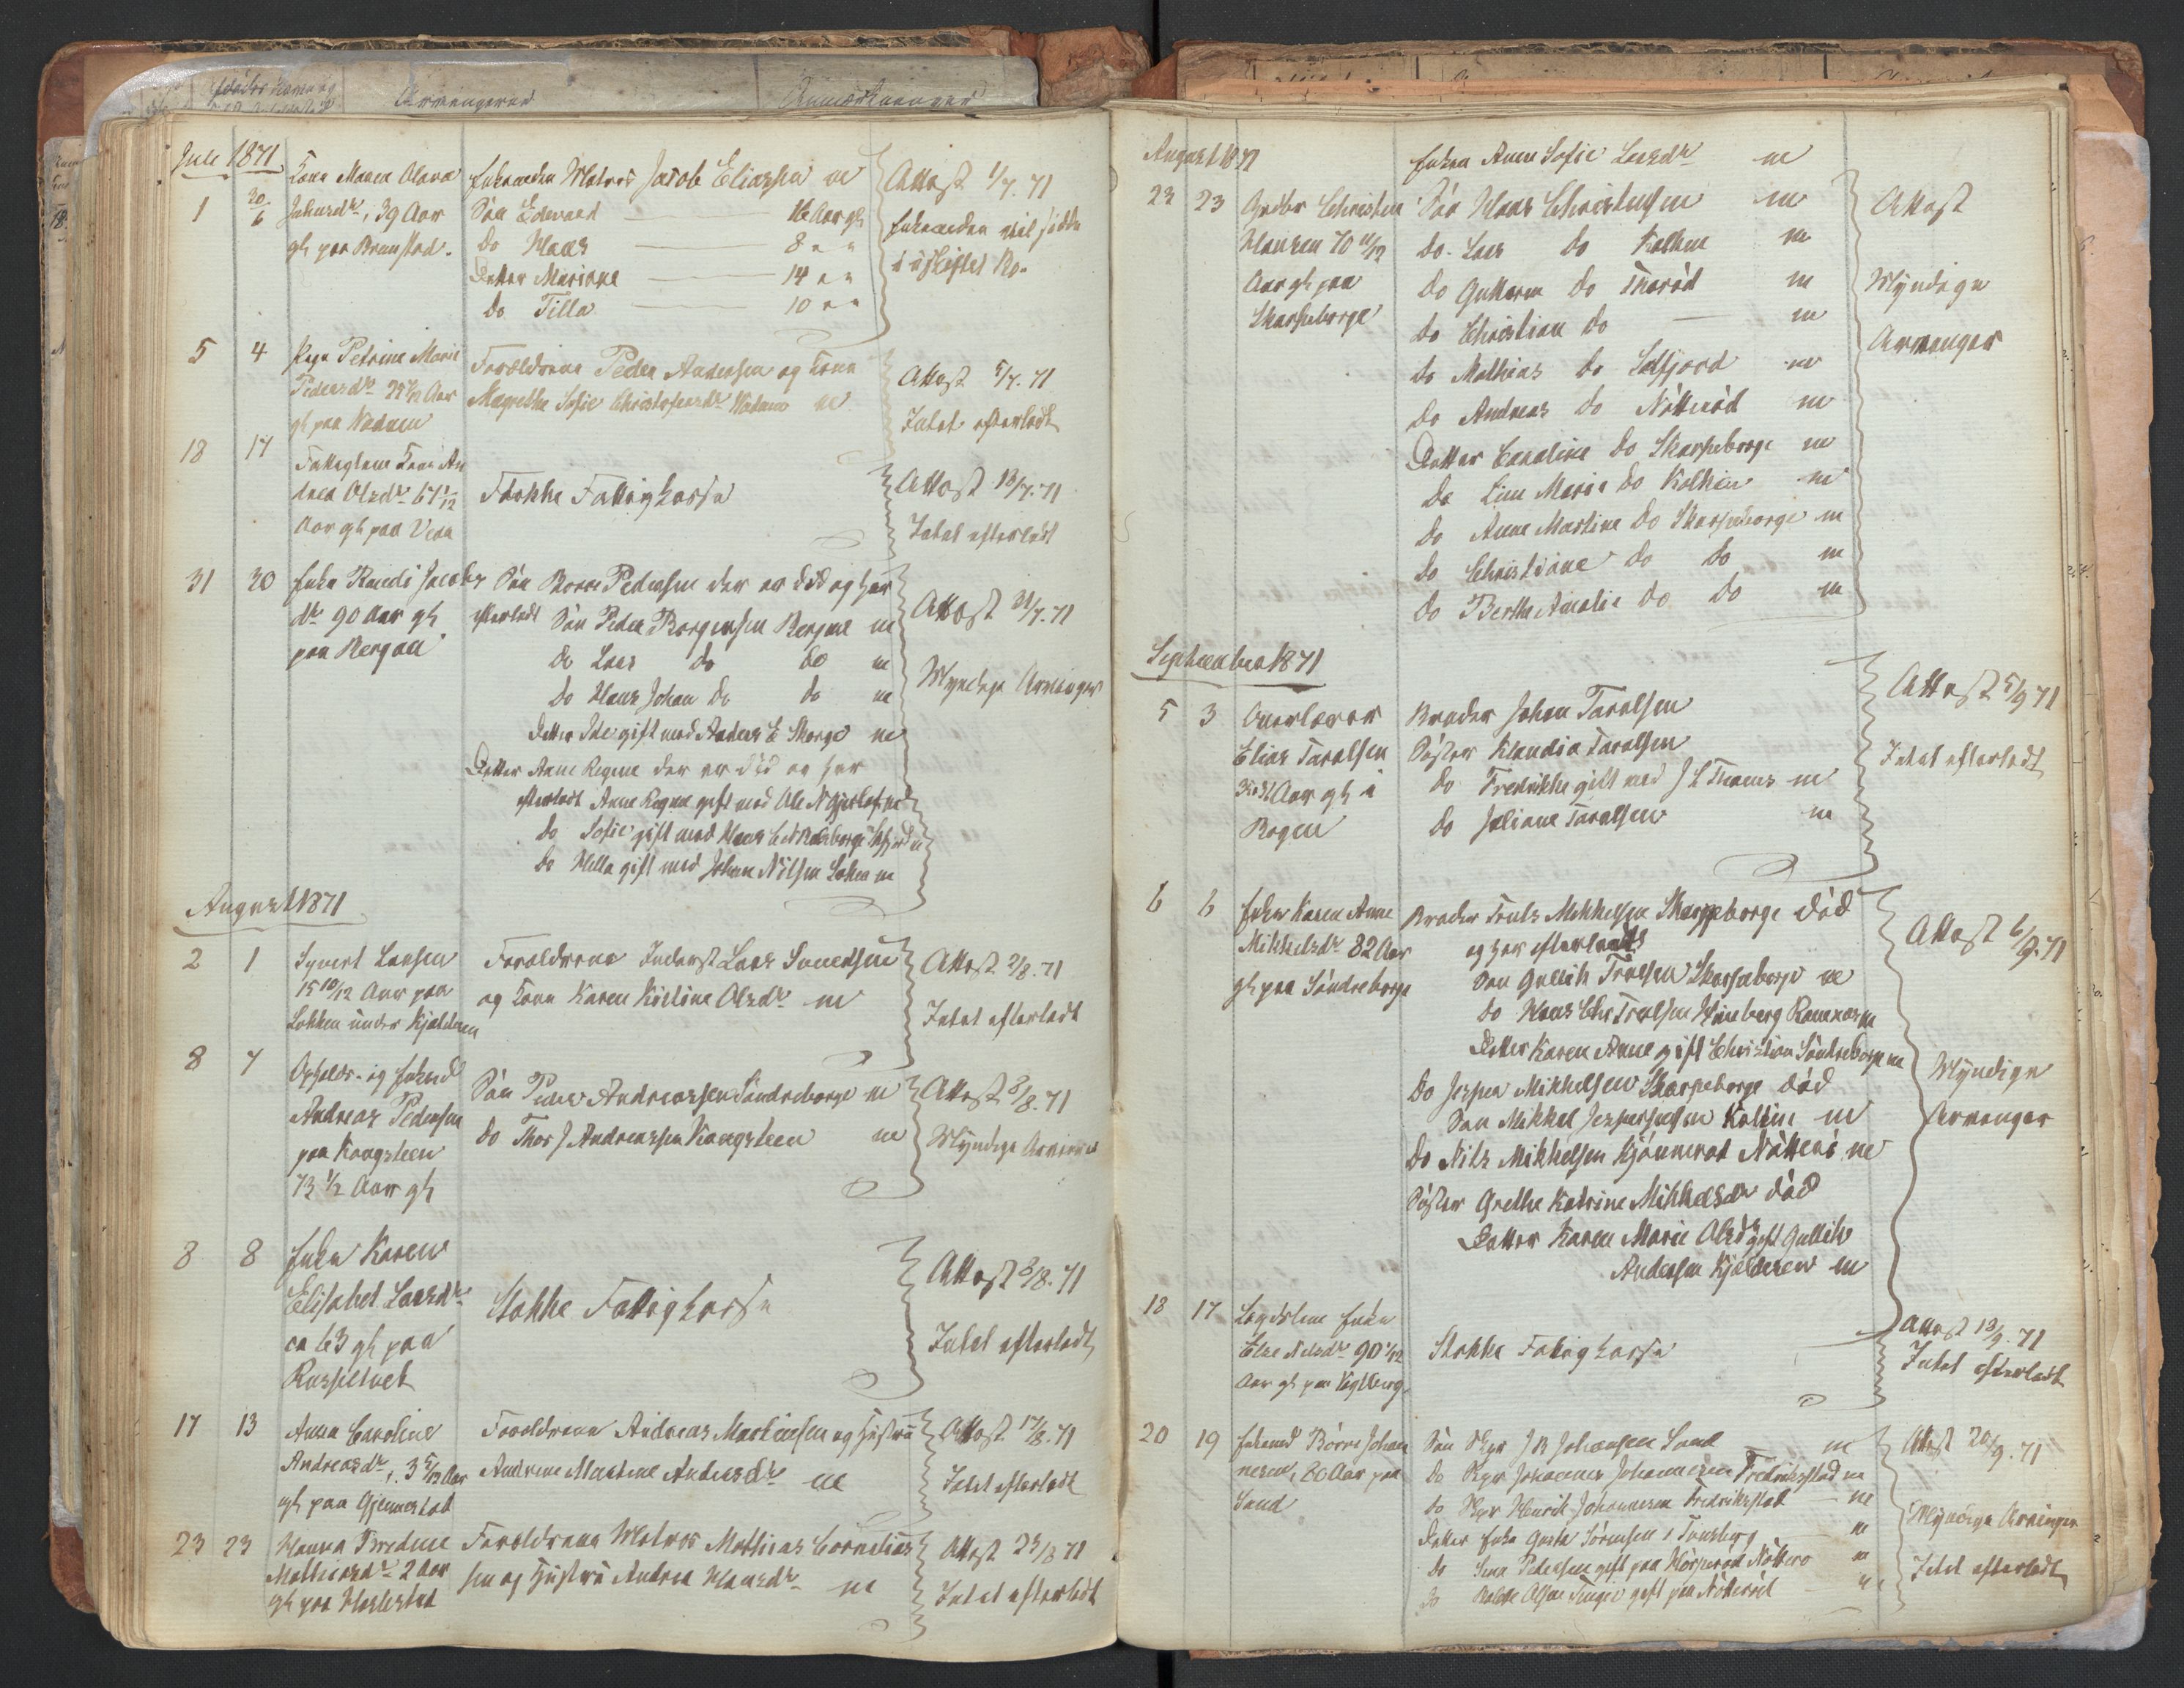 Juli 1871
1 30/6 Kone Maren Olava Enkemanden Matros Jacob Eliassen m Attest 1/7. 71
Johnsdtr, 39 Aar Søn Edevard 16 Aar gl Enkemanden vil sidde
gl paa Brunstad. Do Hans 8 " " i uskiftet Bo.
Datter Mariane 14 " "
Do Tilla 10 " "
5 4 Pige Petrine Marie Forældrene Peder Andersen og Kone Attest 5/7. 71
Pedersdtr Aar Magrethe Sofie Christofersdtr m Intet efterladt
gl paa
18 17 Fattiglem Kone An Attest 18/7. 71
drea Olsdtr 67 1/12 Stokke Fattigkasse Intet efterladt
Aar gl paa Vear
31 30 Enke Randi Jacobs Søn Borre Pedersen der er død og har Attest 31/7. 71
dtr 90 Aar gl efterladt Søn Peder Borgersen Bergan m
paa Bergan Do Lars do do m Myndige Arvinger
Do Hans Johan Do do m
Datter Ide gift med Anders E Skorge m
Datter Anne Regine der er død og har
efterladt Anne Regine gift med Ole N
Do Sofie gift med Hans
Do Hella gift med Johan Nilsen Løken m
August 1871
2 1 Syvert Larsen Forældrene Inderst Lars Sivertsen Attest 2/8. 71
15 10/12 Aar paa og Kone Karen Kirstine Olsdtr m Intet efterladt
Løkken under Kjældern
8 7 Opholds- og Enkemd Søn Peder Andreassen Søndreborge m Attest 8/8. 71
Andreas Pedersen do Thor J Andreassen Kongsteen m Myndige Arvinger
paa Kongsteen
73 1/2 Aar gl
8 8 Enke Karen Attest 8/8. 71
Elisabet Larsdtr Stokke Fattigkasse
ca 63 gl paa Intet efterladt
17 13 Anna Caroline Forældrene Andreas Martinsen og Hustru Attest 17/8. 71
Andreasdtr, 3 5/12 Aar Andrine Martine Andersdtr m Intet efterladt
gl paa Gjennestad
23 23 Hanna Fredine Forældrene Matros Mathias Cornelius Attest 23/8 71
Mathiasdtr 2 Aar sen og Hustru Andrea Hansdtr m Intet efterladt
gl paa
August 1871 Enken Anne Sofie Larsdtr m
23 23 Grdbr Christen Søn Hans Christensen m Attest
Hansen 70 11/12 do Lars do Kolkin m
Aar gl paa Do Guttorm Do Thorød m Myndige
Skarpeborge Do Christian do m Arvinger
do Mathias do Solfjord m
Do Andreas do Nøtterød m
Datter Caroline do Skarpeborge m
Do Line Marie Do Kolkin m
Do Anne Martine Do Skarpeborge m
do Christiane do do m
do Berthe Amalie do do m
September 1871
5 3 Attest 5/9 71
Elias Taralsen Broder Johan Taralsen
Aar gl i Søster Klaudia Taralsen Intet efterladt
Bogen do Fredrikke gift med J L Thoms m
do Juliane Taralsen m
6 6 Enke Karen Anne Broder Truls Mikkelsen Skarpeborge død Attest 6/9. 71
Mikkelsdtr 82 Aar og har efterladt
gl paa Søndreborge Søn Gullik Trulsen Skarpeborge m
do Hans Chr Trulsen
Datter Karen Anne gift Christian Søndreborge m Myndige
Do Jesper Mikkelsen Skarpeborge død Arvinger
Søn Mikkel Jespersen Kolkin m
do Nils Mikkelsen Nøtterø m
Søster Grethe Katrine Mikkelsdtr død
Datter Karen Marie Olsdtr gift Gullik
Andersen Kjældern m
18 17 Lægdslem Enke Attest 18/9. 71
Else Nilsdtr 90 1/12 Stokke Fatigkasse Intet efterladt
Aar gl paa
20 19 Enkemd Børre Johan Søn Skpr J B Johansen Sand m Attest 20/9. 71
nesen, 80 Aar paa Do Skpr Johannes Johannesen Fredrikstad m
Sand do Skpr Henrik Johannesen Fredrikstad m Myndige Arvinger
Datter Enke Sørensen i Tønsberg m
Do Pedersen gift paa Nøtterø m Intet efterladt
Do Olsen gift paa